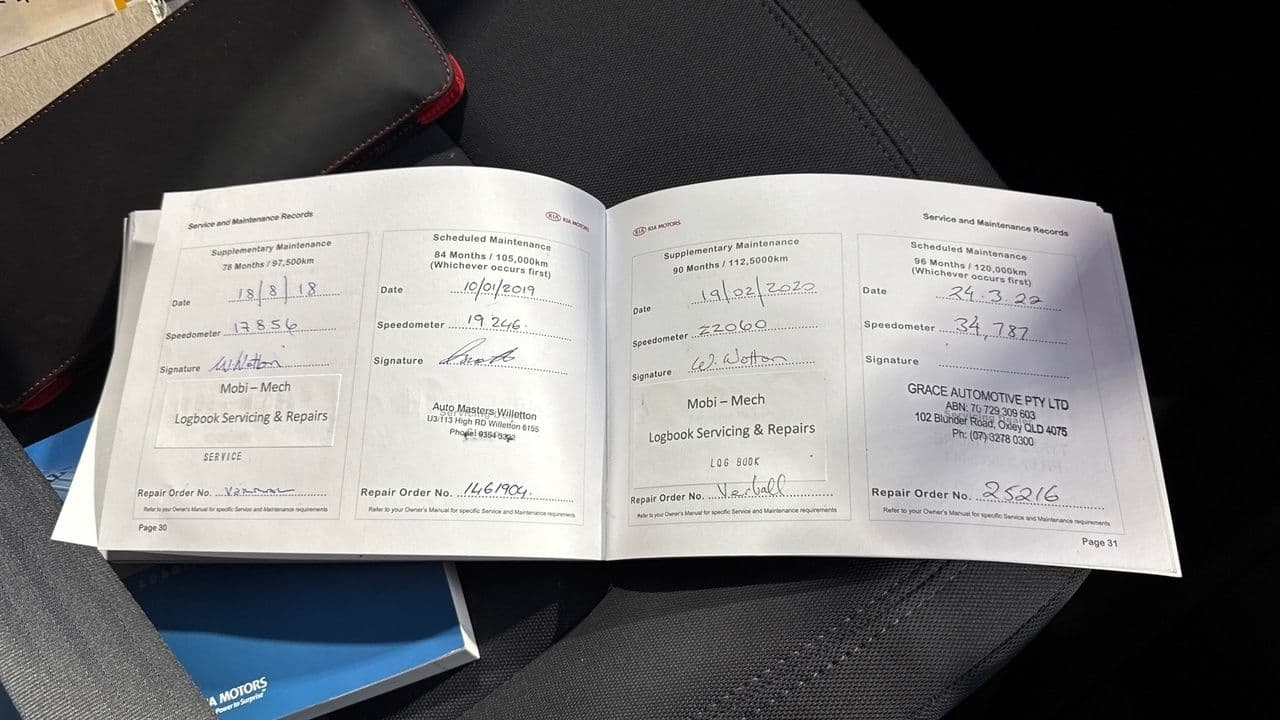 Service and Maintenance Records
KIA KIA MOTORS
Supplementary Maintenance
78 Months / 97,500km
Date 18/8/18
Speedometer 17856
Signature W. Wotton
Mobi – Mech
Logbook Servicing & Repairs
SERVICE
Repair Order No.
Refer to your Owner's Manual for specific Service and Maintenance requirements
Page 30
Scheduled Maintenance
84 Months / 105,000km
(Whichever occurs first)
Date 10/01/2019
Speedometer 19 246.
Signature
Auto Masters Willetton
U3/113 High RD Willetton 6155
Phone: 9354
Repair Order No. 1461904.
Refer to your Owner's Manual for specific Service and Maintenance requirements
KIA KIA MOTORS
Service and Maintenance Records
Supplementary Maintenance
90 Months / 112,5000km
Date 19/02/2020
Speedometer 22060
Signature W. Wotton
Mobi – Mech
Logbook Servicing & Repairs
LOG BOOK
Repair Order No. Verball
Refer to your Owner's Manual for specific Service and Maintenance requirements
Scheduled Maintenance
96 Months / 120,000km
(Whichever occurs first)
Date 24.3.22
Speedometer 34,787
Signature
GRACE AUTOMOTIVE PTY LTD
ABN: 70 729 309 603
102 Blunder Road, Oxley QLD 4075
Ph: (07) 3278 0300
Repair Order No. 25216
Refer to your Owner's Manual for specific Service and Maintenance requirements
Page 31
KIA MOTORS
Power to Surprise